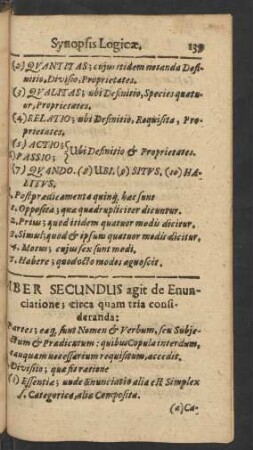 Synopsis Logicæ. 139
(2) QVANTITAS; cujus itidem notanda Defi-
nitio, Divisio, Proprietates.
(3) QVALITAS; ubi Definitio, Species quatu-
or, Proprietates.
(4) RELATIO; ubi Definitio, Requisita, Pro-
prietates.
(5) ACTIO;
PASSIO; } Ubi Definitio & Proprietates.
(7) QVANDO. (8) UBI. (9) SITVS. (10) HA-
BITVS.
Postprædicamenta quinq, hæc sunt
1. Opposita; qua quadrupliciter dicuntur.
2. Prius; quod itidem quatuor modis dicitur.
3. Simul; quod & ipsum quatuor modis dicitur.
4. Motus; cujus sex sunt modi.
5. Habere; quod octo modos agnoscit.
IBER SECUNDUS agit de Enun-
ciatione; circa quam tria consi-
deranda:
Partes; eæq, sunt Nomen & Verbum, seu Subje-
ctum & Prædicatum: quibus Copula interdum,
tanquam necessarium requisitum, accedit.
Divisio; quæ fit ratione
(1) Essentiæ; unde Enunciatio alia est Simplex
s. Categorica, alia Composita.
(2) Ca-